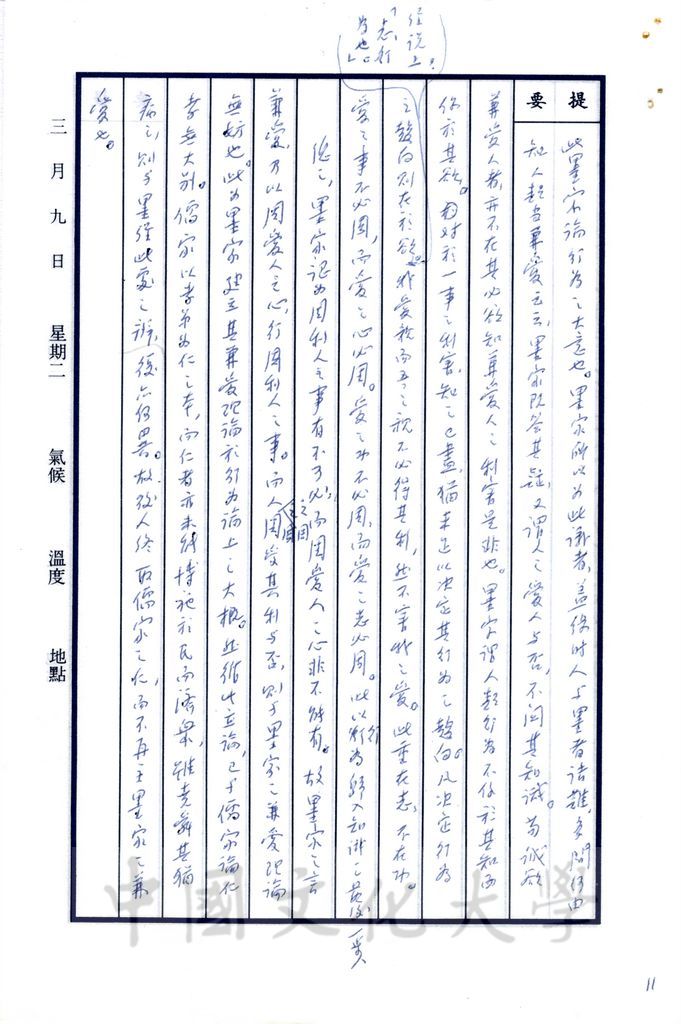 經說上：
「志、行，
為也」。
提要
此墨家論行為之大意也。墨家所以為此論者，蓋緣時人與墨者詰難，多問何由
知人起與兼愛云云，墨家既答其疑，又謂人之愛人與否，不關其知識。苟誠欲
兼愛人者，亦不在其必欲知兼愛人之利害是非也。墨家謂人起行為不依於其知而
依於其欲。因對於一事之利害，知之已盡，猶未足以決定其行為之趨向。凡決定行為
之趨向則在於欲。我愛親而吾之親不必得其利，然不害我之愛。此重在志，不在功。
愛之事不必周，而愛之心必周。愛之功不必周，而愛之志必周。此以行為歸入知識之最後一義
總之，墨家認為周利人之事有不可必，而周愛人之心非不能有。故墨家之言
兼愛，乃以周愛人之心，行周利人之事。而人之周受其利與否，則與墨家之兼愛理論
無妨也。此為墨家建立其兼愛理論於行為論上之大概。然循此立論，已與儒家論仁
孝無大別。儒家以孝弟為仁之本，而仁者亦未能博施於民而濟眾，雖堯舜其猶
病之，則與墨經此處之辨，復亦何異。故後人終取儒家之仁，而不再主墨家之兼
愛也。
三月九日 星期二 氣候 溫度 地點
中國文化大學
11